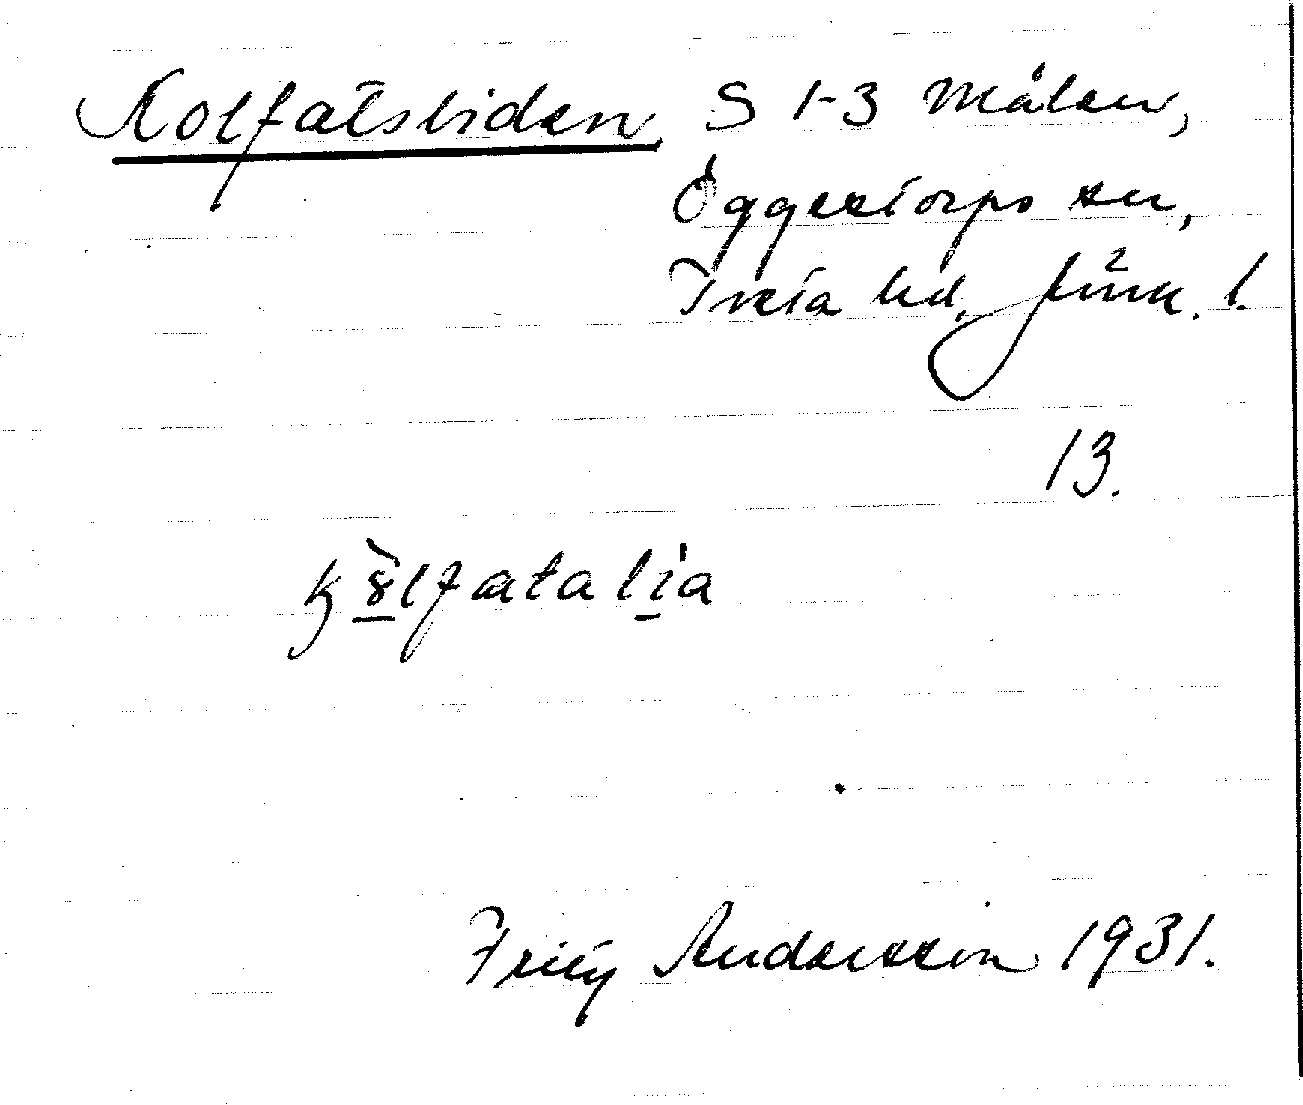 Kolfatsliden S 1-3 Målen,
Öggestorps sn,
Tveta hd, Jönk. l.
13.
Fritz Andersson 1931.